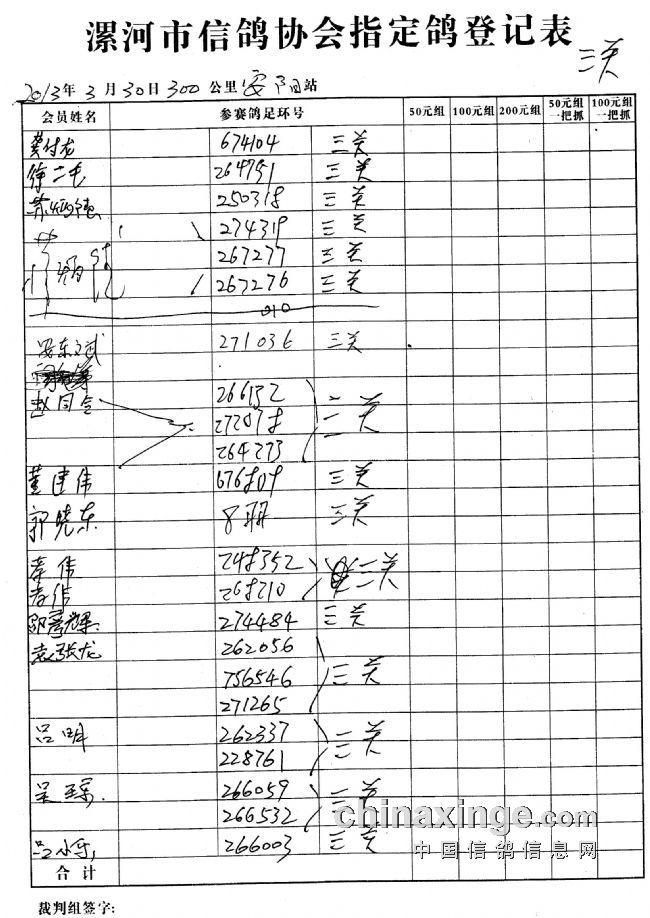 漯河市信鸽协会指定鸽登记表
三关
2013年3月30日300公里安阳站
会员姓名 参赛鸽足环号 50元组 100元组 200元组 50元组一把抓 100元组一把抓
龙 674104 三关
徐二毛 264751 三关
250318 三关
274319 三关
267277 三关
267276 三关
安东斌 271036 三关
266152
赵国合 272018 二关
264273
董建伟 676808 三关
郭晓东 三关
李伟 248352 二关
李伟 268210
辉 274484 三关
袁张龙 262056
756546 三关
271265
吕明 262337 二关
228761
266059 二关
266532
吕小于 266003 三关
合计
chinaxinge.com
中国信鸽信息网
裁判组签字: